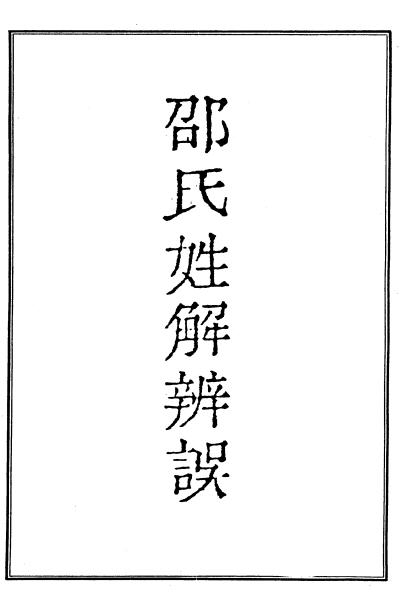 邵氏姓解辨誤